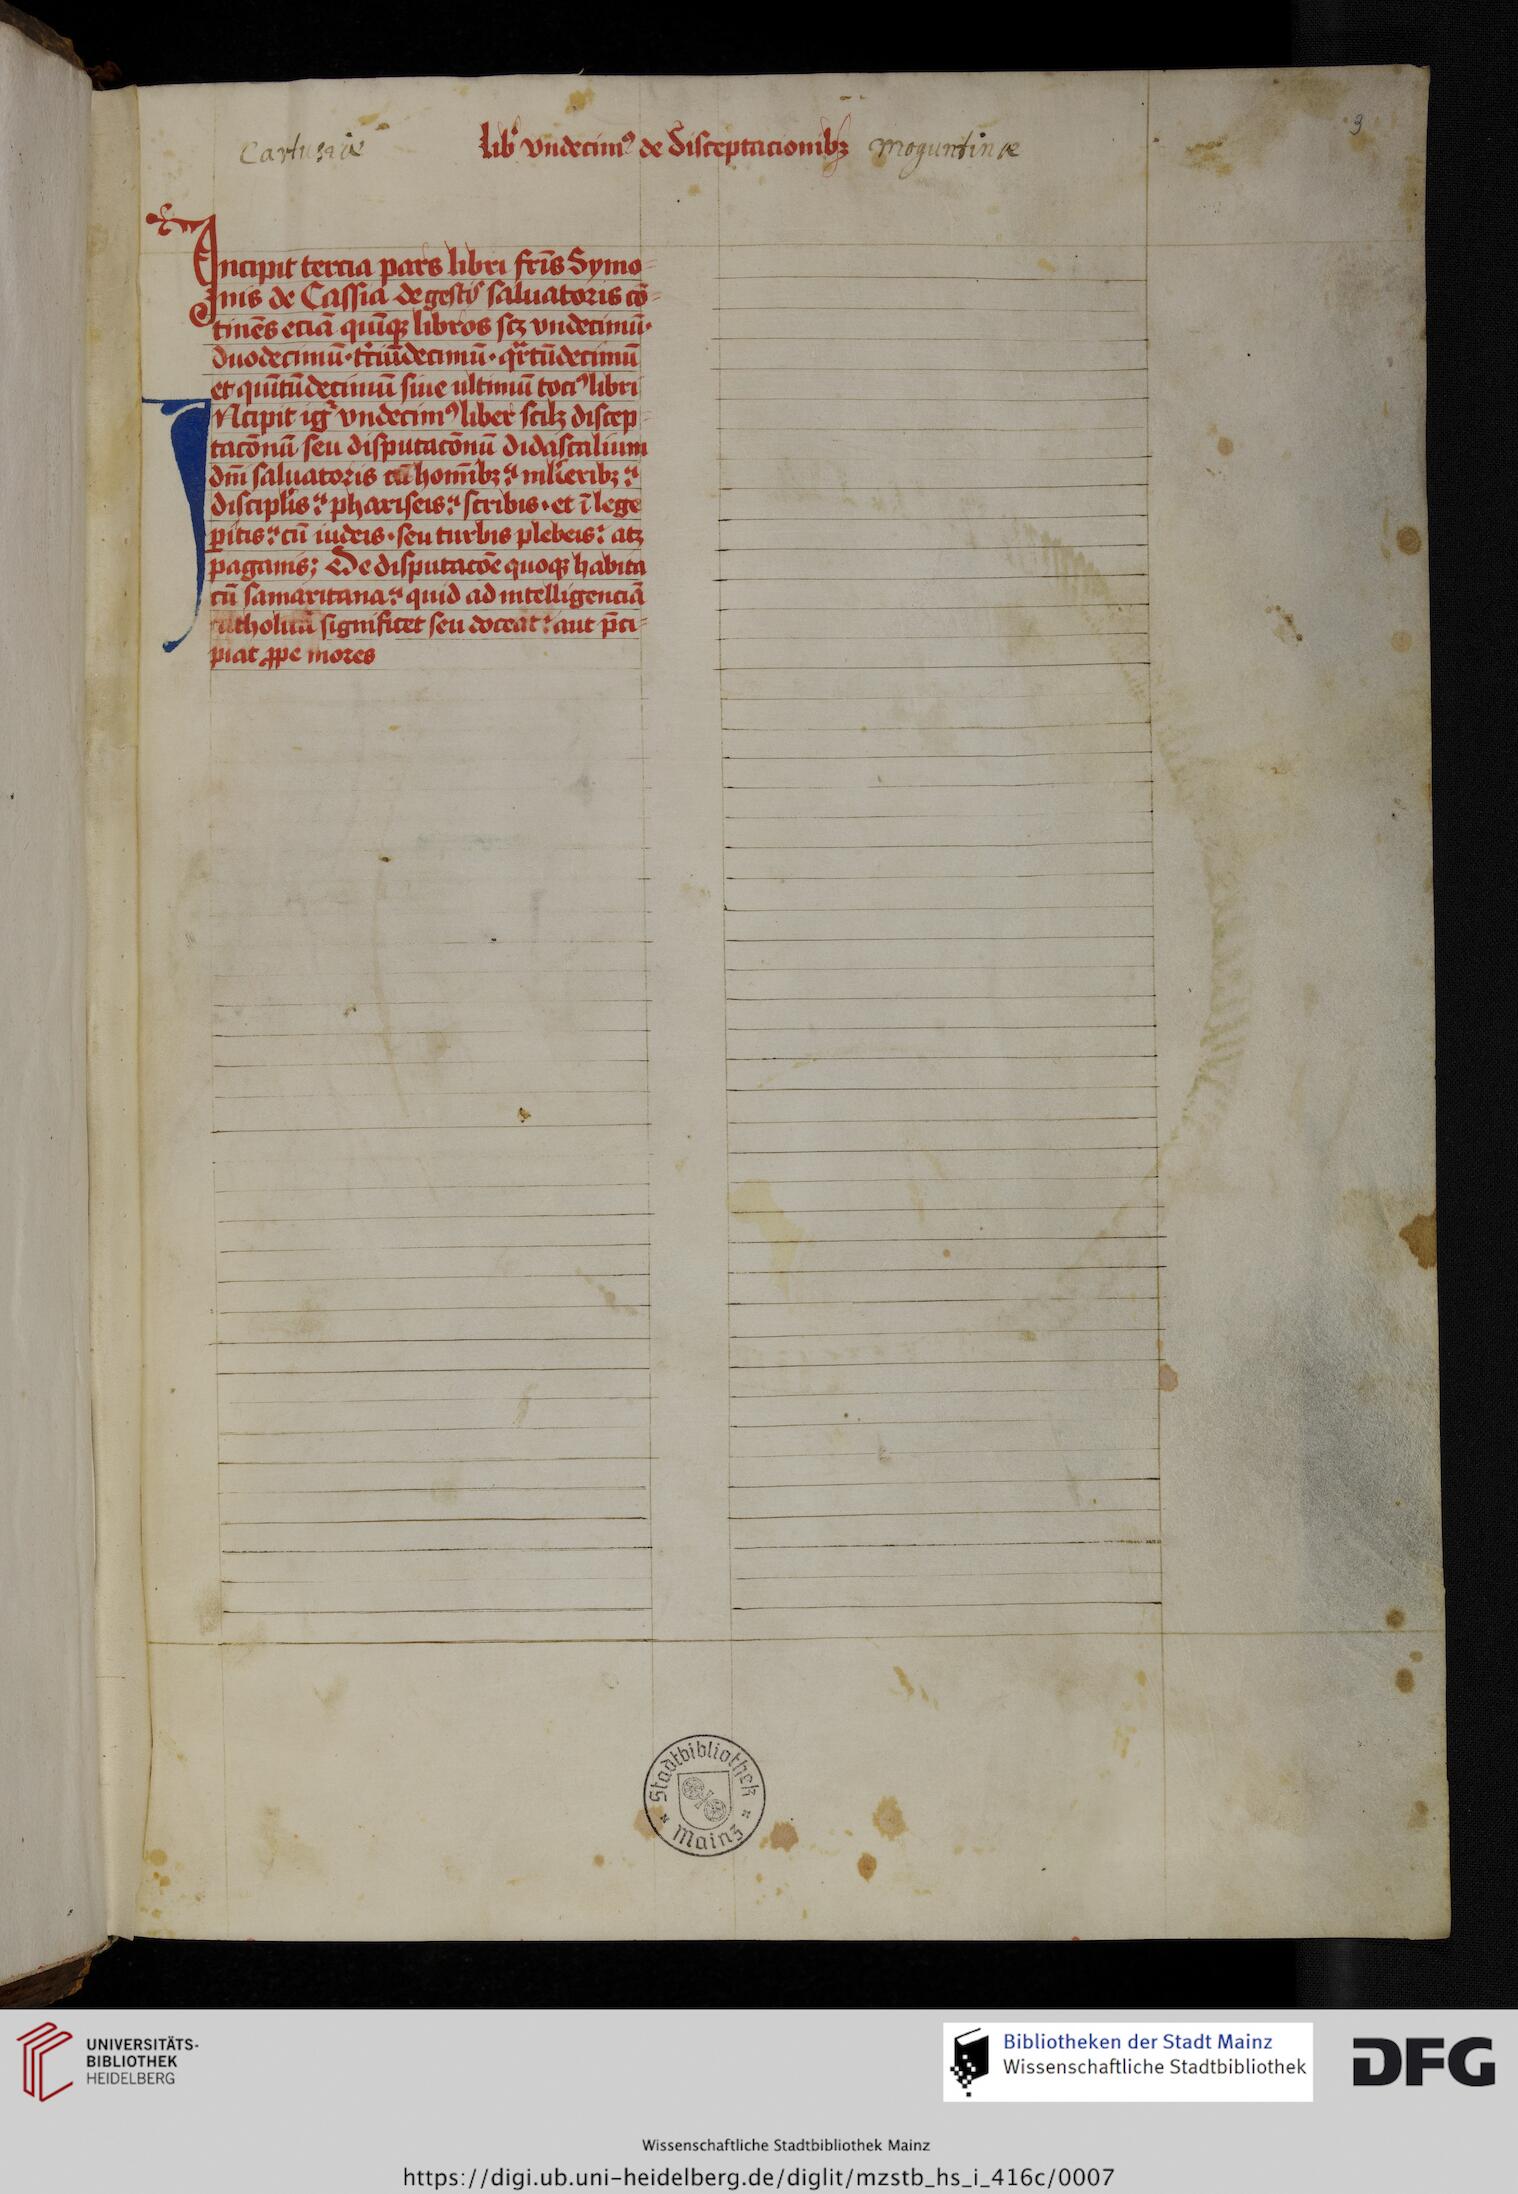 3
Cartusiæ libʳ vndecimꝰ de disceptacionibꝫ Moguntinæ
Incipit tercia pars libri fr̄is Symo⸗
nis de Cassia de gestꝭ saluatoris cō⸗
tinēs eciā quīqꝫ libros scꝫ vndecimū·
duodecimū· t̄ciūdecimū· qr̄tūdecimū
et quītūdecimū siue ultimū tociꝰ libri
INcipit igʳ vndecimꝰ liber scilꝫ discep⸗
tacōnū seu disputacōnū didascalium
dn̄i saluatoris cū hom̄ibꝫ: mlīeribꝫ:
discipl̄is: phariseis: scribis· et ī lege
ꝑitis: cū iudeis· seu turbis plebeis: atꝫ
paganis; De disputacōe quoqꝫ habita
cū samaritana: quid ad intelligenciā
catholicā significet seu doceat: aut p̄ci⸗
piat ꝓpe mores
Stadtbibliothek
Mainz
UNIVERSITÄTS-
BIBLIOTHEK
HEIDELBERG
Bibliotheken der Stadt Mainz
Wissenschaftliche Stadtbibliothek
DFG
Wissenschaftliche Stadtbibliothek Mainz
https://digi.ub.uni-heidelberg.de/diglit/mzstb_hs_i_416c/0007